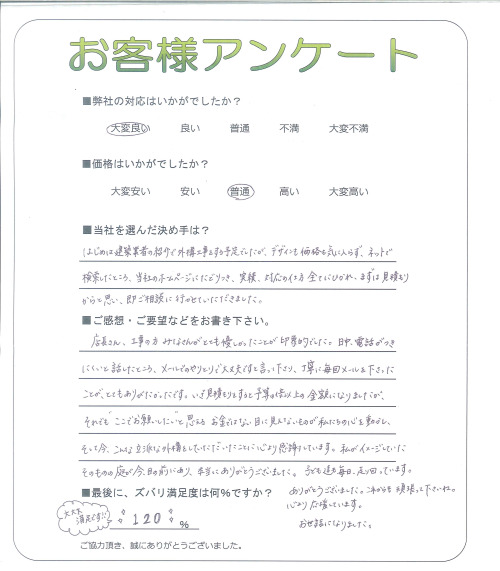 お客様アンケート
■弊社の対応はいかがでしたか？
大変良い 良い 普通 不満 大変不満
■価格はいかがでしたか？
大変安い 安い 普通 高い 大変高い
■当社を選んだ決め手は？
はじめは建築業者の紹介で外構工事をする予定でしたが、デザインも価格も気に入らず、ネットで
検索したところ、当社のホームページにたどりつき、実績、対応の仕方全てにひかれ、まずは見積もり
からと思い、即ご相談に行かせていただきました。
■ご感想・ご要望などをお書き下さい。
店長さん、工事の方みなさんがとても優しかったことが印象的でした。日中、電話がつき
にくいと話したところ、メールでのやりとりで大丈夫ですと言って下さり、丁寧に毎回メールを下さった
ことが、とてもありがたかったです。いざ見積もりをすると予算の倍以上の金額になりましたが、
それでも"ここでお願いしたい"と思える、お金ではない目に見えないものが私たちの心を動かし、
そして今、こんな立派な外構をしていただいたことに心より感謝しています。私がイメージしていた
そのものの庭が今、目の前にあり、本当にありがとうございました。子ども達も毎日、走り回っています。
■最後に、ズバリ満足度は何%ですか？
ありがとうございました。これからも頑張って下さいね。
心より応援しています。
お世話になりました。
大大大
満足です!!
120 %
ご協力頂き、誠にありがとうございました。